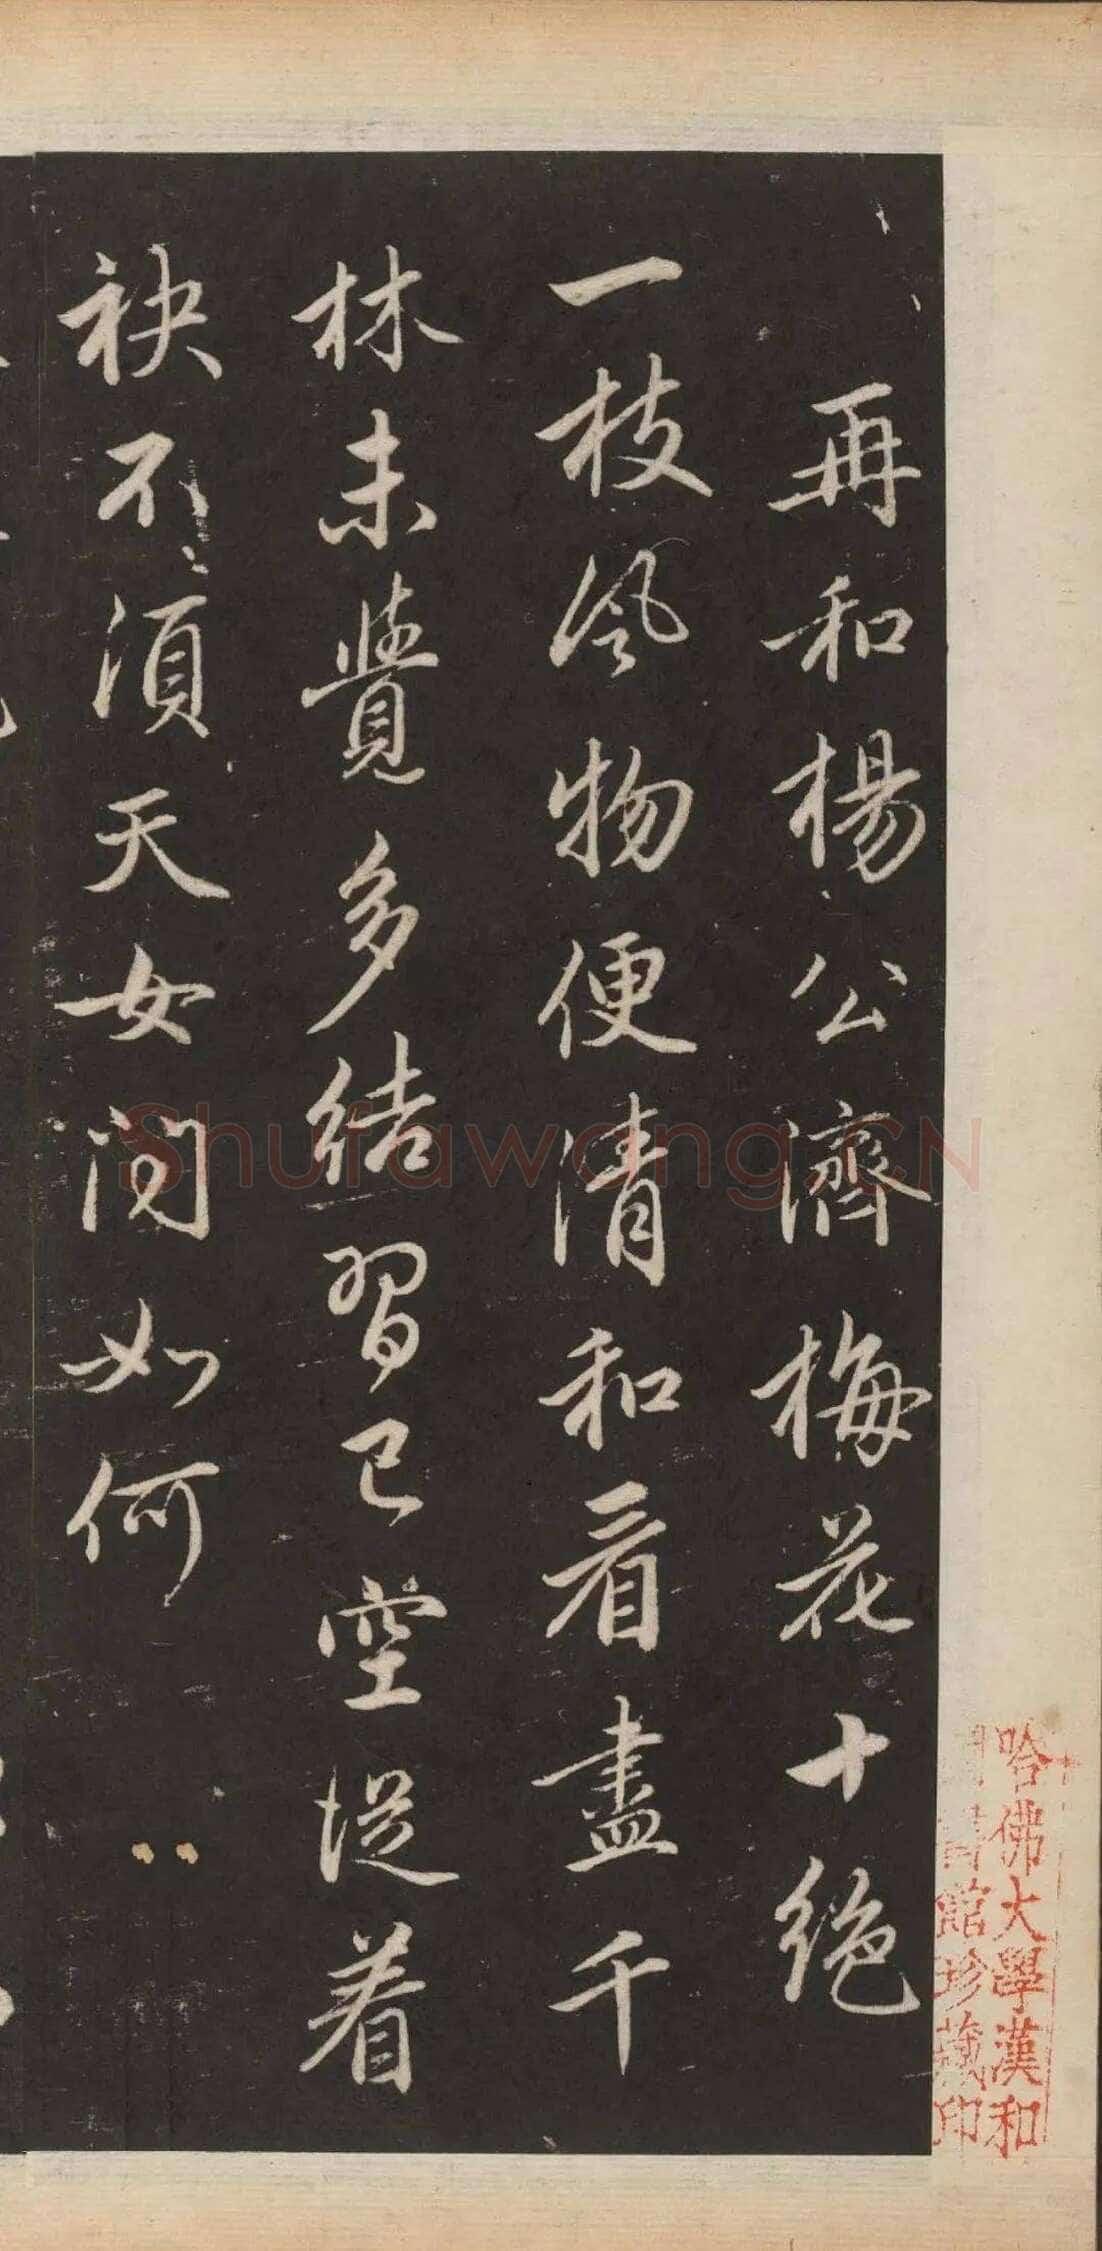 再和楊公濟梅花十絕
一枝風物便清和看盡千
林未覺多結習已空從着
袂不須天女問如何
哈佛大學漢和
館珍藏印
Shufawang.CN